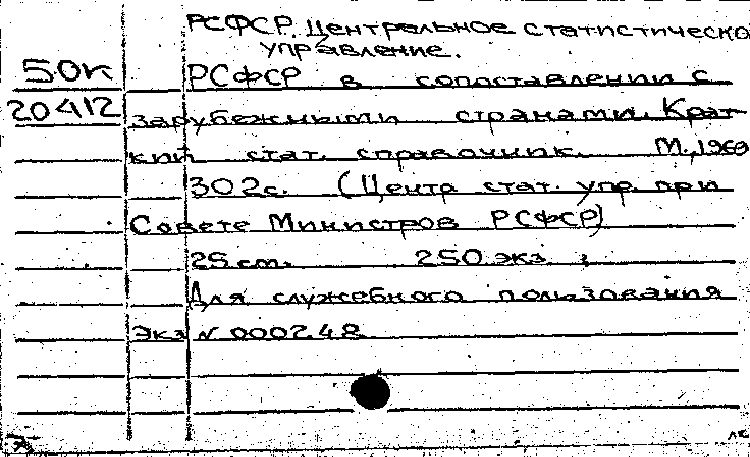 РСФСР. Центральное статистическо
управление.
50К РСФСР в сопоставлении с
20412 зарубежными странами. Крат
кий стат. справочник. М., 1969
302с. (Центр стат. упр. при
Совете Министров РСФСР)
25 cm. 250 экз.
Для служебного пользования
Экз N 000248